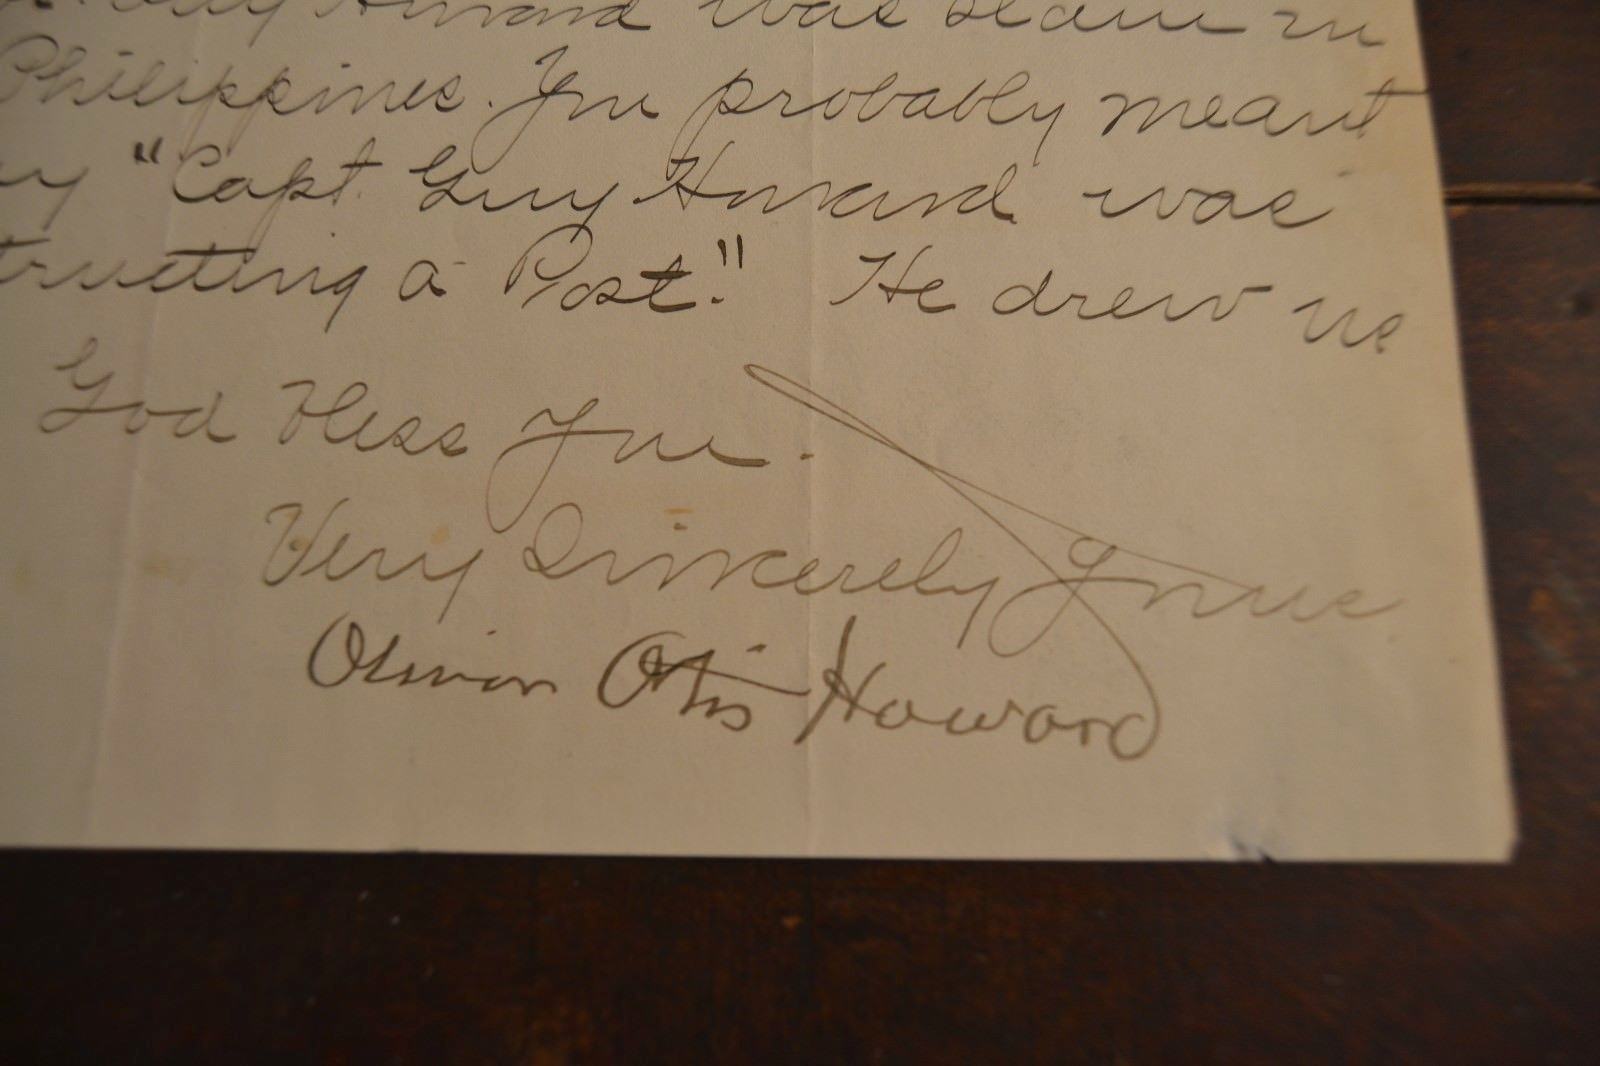 Guy Howard was slain in
Philippines. You probably meant
"Capt. Guy Howard was
tructing a Post." He drew us
God bless you.
Very Sincerely Yours
Oliver Otis Howard